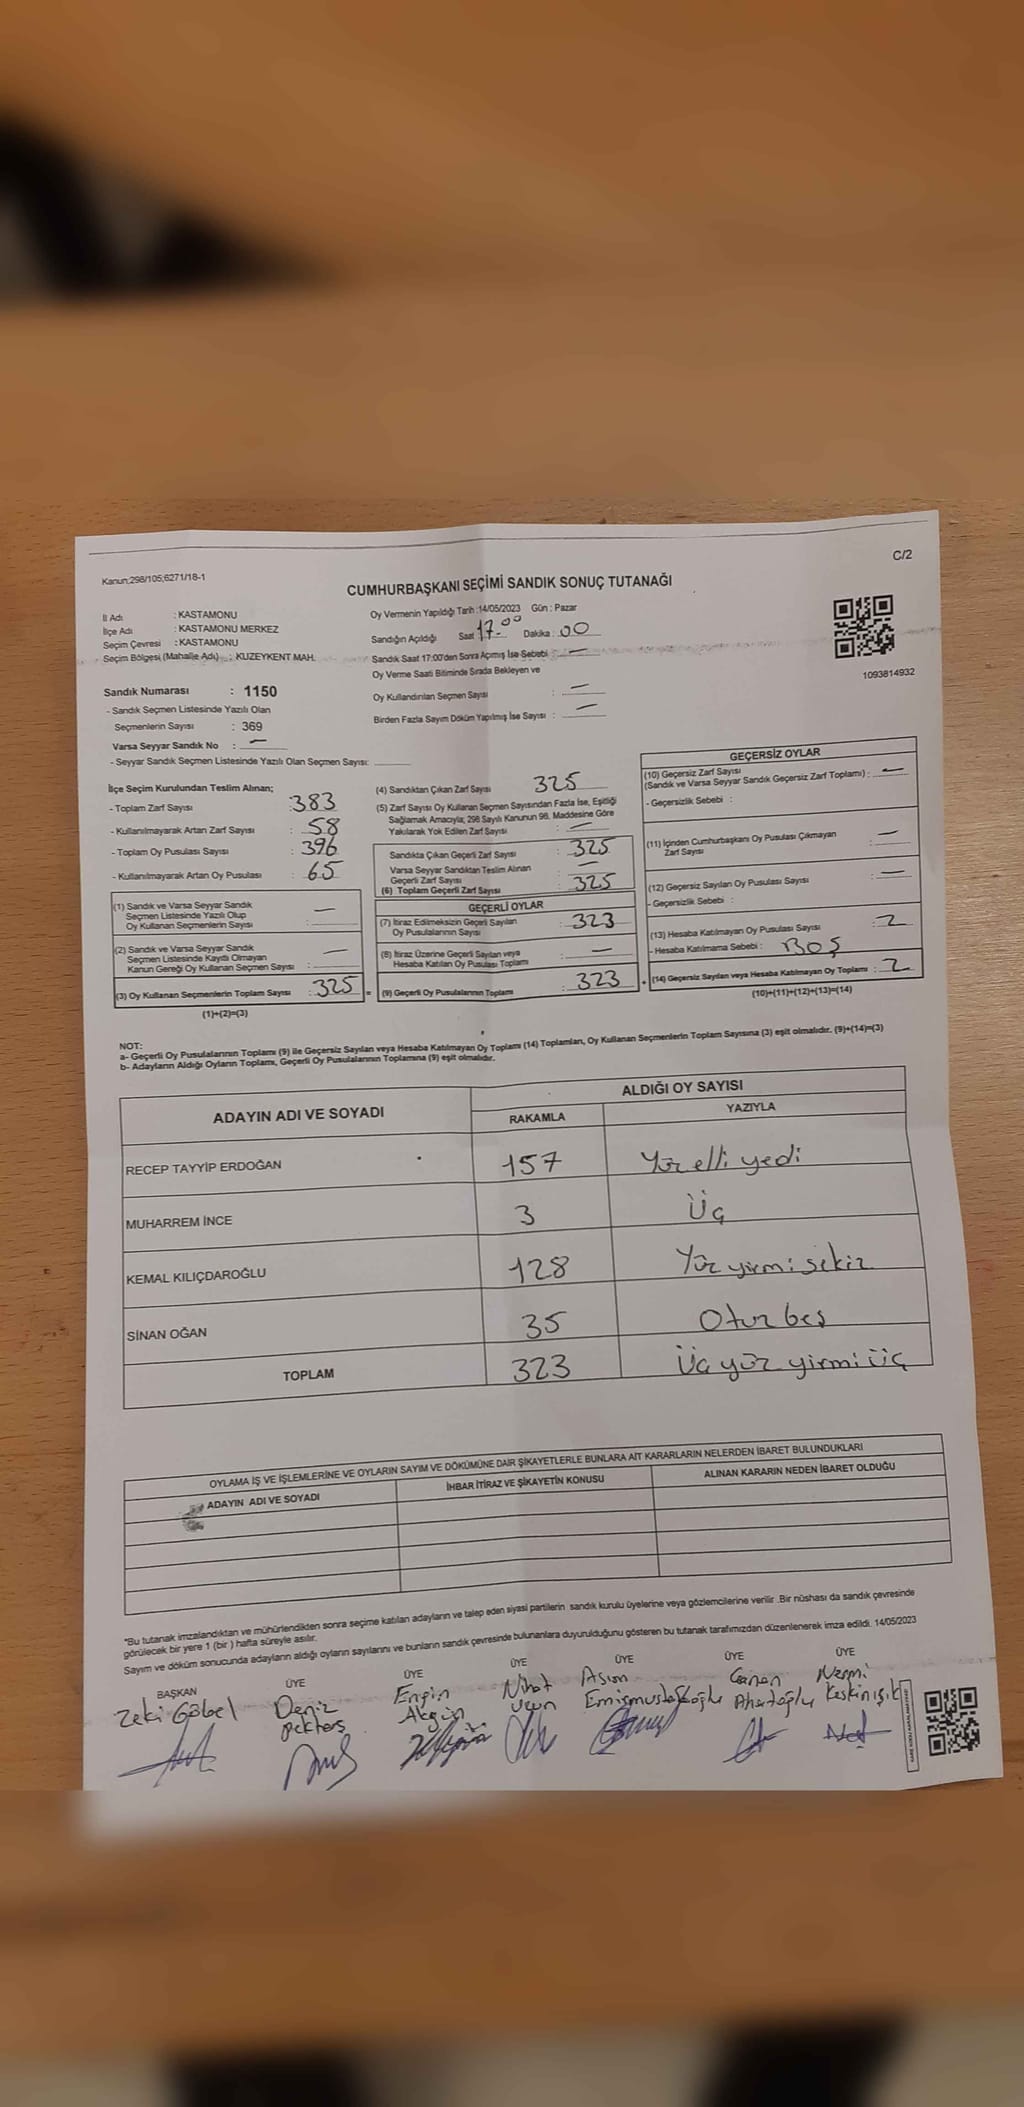 Kanun:298/105;6271/18-1
C/2
CUMHURBAŞKANI SEÇİMİ SANDIK SONUÇ TUTANAĞI
İl Adı : KASTAMONU
İlçe Adı : KASTAMONU MERKEZ
Seçim Çevresi : KASTAMONU
Seçim Bölgesi (Mahalle Adı) : KUZEYKENT MAH.
Oy Vermenin Yapıldığı Tarih :14/05/2023 Gün : Pazar
Sandığın Açıldığı Saat 17.00 Dakika : 00
Sandık Saat 17:00'den Sonra Açımış İse Sebebi : —
Oy Verme Saati Bitiminde Sırada Bekleyen ve
Oy Kullandırılan Seçmen Sayısı : —
Birden Fazla Sayım Döküm Yapılmış İse Sayısı : —
1093814932
Sandık Numarası : 1150
- Sandık Seçmen Listesinde Yazılı Olan
Seçmenlerin Sayısı : 369
Varsa Seyyar Sandık No : —
- Seyyar Sandık Seçmen Listesinde Yazılı Olan Seçmen Sayısı:
İlçe Seçim Kurulundan Teslim Alınan;
- Toplam Zarf Sayısı :383
- Kullanılmayarak Artan Zarf Sayısı : 58
- Toplam Oy Pusulası Sayısı : 396
- Kullanılmayarak Artan Oy Pusulası : 65
(1) Sandık ve Varsa Seyyar Sandık
Seçmen Listesinde Yazılı Olup
Oy Kullanan Seçmenlerin Sayısı : —
(2) Sandık ve Varsa Seyyar Sandık
Seçmen Listesinde Kayıtlı Olmayan
Kanun Gereği Oy Kullanan Seçmen Sayısı : —
(3) Oy Kullanan Seçmenlerin Toplam Sayısı : 325
(1)+(2)=(3)
(4) Sandıktan Çıkan Zarf Sayısı 325
(5) Zarf Sayısı Oy Kullanan Seçmen Sayısından Fazla İse, Eşitliği
Sağlamak Amacıyla; 298 Sayılı Kanunun 98. Maddesine Göre
Yakılarak Yok Edilen Zarf Sayısı : —
Sandıkta Çıkan Geçerli Zarf Sayısı : 325
Varsa Seyyar Sandıktan Teslim Alınan
Geçerli Zarf Sayısı : —
(6) Toplam Geçerli Zarf Sayısı : 325
GEÇERLİ OYLAR
(7) İtiraz Edilmeksizin Geçerli Sayılan
Oy Pusulalarının Sayısı : 323
(8) İtiraz Üzerine Geçerli Sayılan ve
Hesaba Katılan Oy Pusulası Toplamı : —
= (9) Geçerli Oy Pusulalarının Toplamı : 323
GEÇERSİZ OYLAR
(10) Geçersiz Zarf Sayısı
(Sandık ve Varsa Seyyar Sandık Geçersiz Zarf Toplamı) : —
- Geçersizlik Sebebi :
(11) İçinden Cumhurbaşkanı Oy Pusulası Çıkmayan
Zarf Sayısı : —
(12) Geçersiz Sayılan Oy Pusulası Sayısı : —
- Geçersizlik Sebebi :
(13) Hesaba Katılmayan Oy Pusulası Sayısı : 2
- Hesaba Katılmama Sebebi : BOŞ
+ (14) Geçersiz Sayılan veya Hesaba Katılmayan Oy Toplamı : 2
(10)+(11)+(12)+(13)=(14)
NOT:
a- Geçerli Oy Pusulalarının Toplamı (9) ile Geçersiz Sayılan veya Hesaba Katılmayan Oy Toplamı (14) Toplamları, Oy Kullanan Seçmenlerin Toplam Sayısına (3) eşit olmalıdır. (9)+(14)=(3)
b- Adayların Aldığı Oyların Toplamı, Geçerli Oy Pusulalarının Toplamına (9) eşit olmalıdır.
ADAYIN ADI VE SOYADI
ALDIĞI OY SAYISI
RAKAMLA YAZIYLA
RECEP TAYYİP ERDOĞAN 157 Yüz elli yedi
MUHARREM İNCE 3 Üç
KEMAL KILIÇDAROĞLU 128 Yüz yirmi sekiz
SİNAN OĞAN 35 Otuz beş
TOPLAM 323 Üç yüz yirmi üç
OYLAMA İŞ VE İŞLEMLERİNE VE OYLARIN SAYIM VE DÖKÜMÜNE DAİR ŞİKAYETLERLE BUNLARA AİT KARARLARIN NELERDEN İBARET BULUNDUKLARI
ADAYIN ADI VE SOYADI İHBAR İTİRAZ VE ŞİKAYETİN KONUSU ALINAN KARARIN NEDEN İBARET OLDUĞU
*Bu tutanak imzalandıktan ve mühürlendikten sonra seçime katılan adayların ve talep eden siyasi partilerin sandık kurulu üyelerine veya gözlemcilerine verilir .Bir nüshası da sandık çevresinde
görülecek bir yere 1 (bir ) hafta süreyle asılır.
Sayım ve döküm sonucunda adayların aldığı oyların sayılarını ve bunların sandık çevresinde bulunanlara duyurulduğunu gösteren bu tutanak tarafımızdan düzenlenerek imza edildi. 14/05/2023
BAŞKAN ÜYE ÜYE ÜYE ÜYE ÜYE ÜYE
Zeki Göbel Deniz Engin Akgün Nihat Asım Canan Nesmi Keskinışık